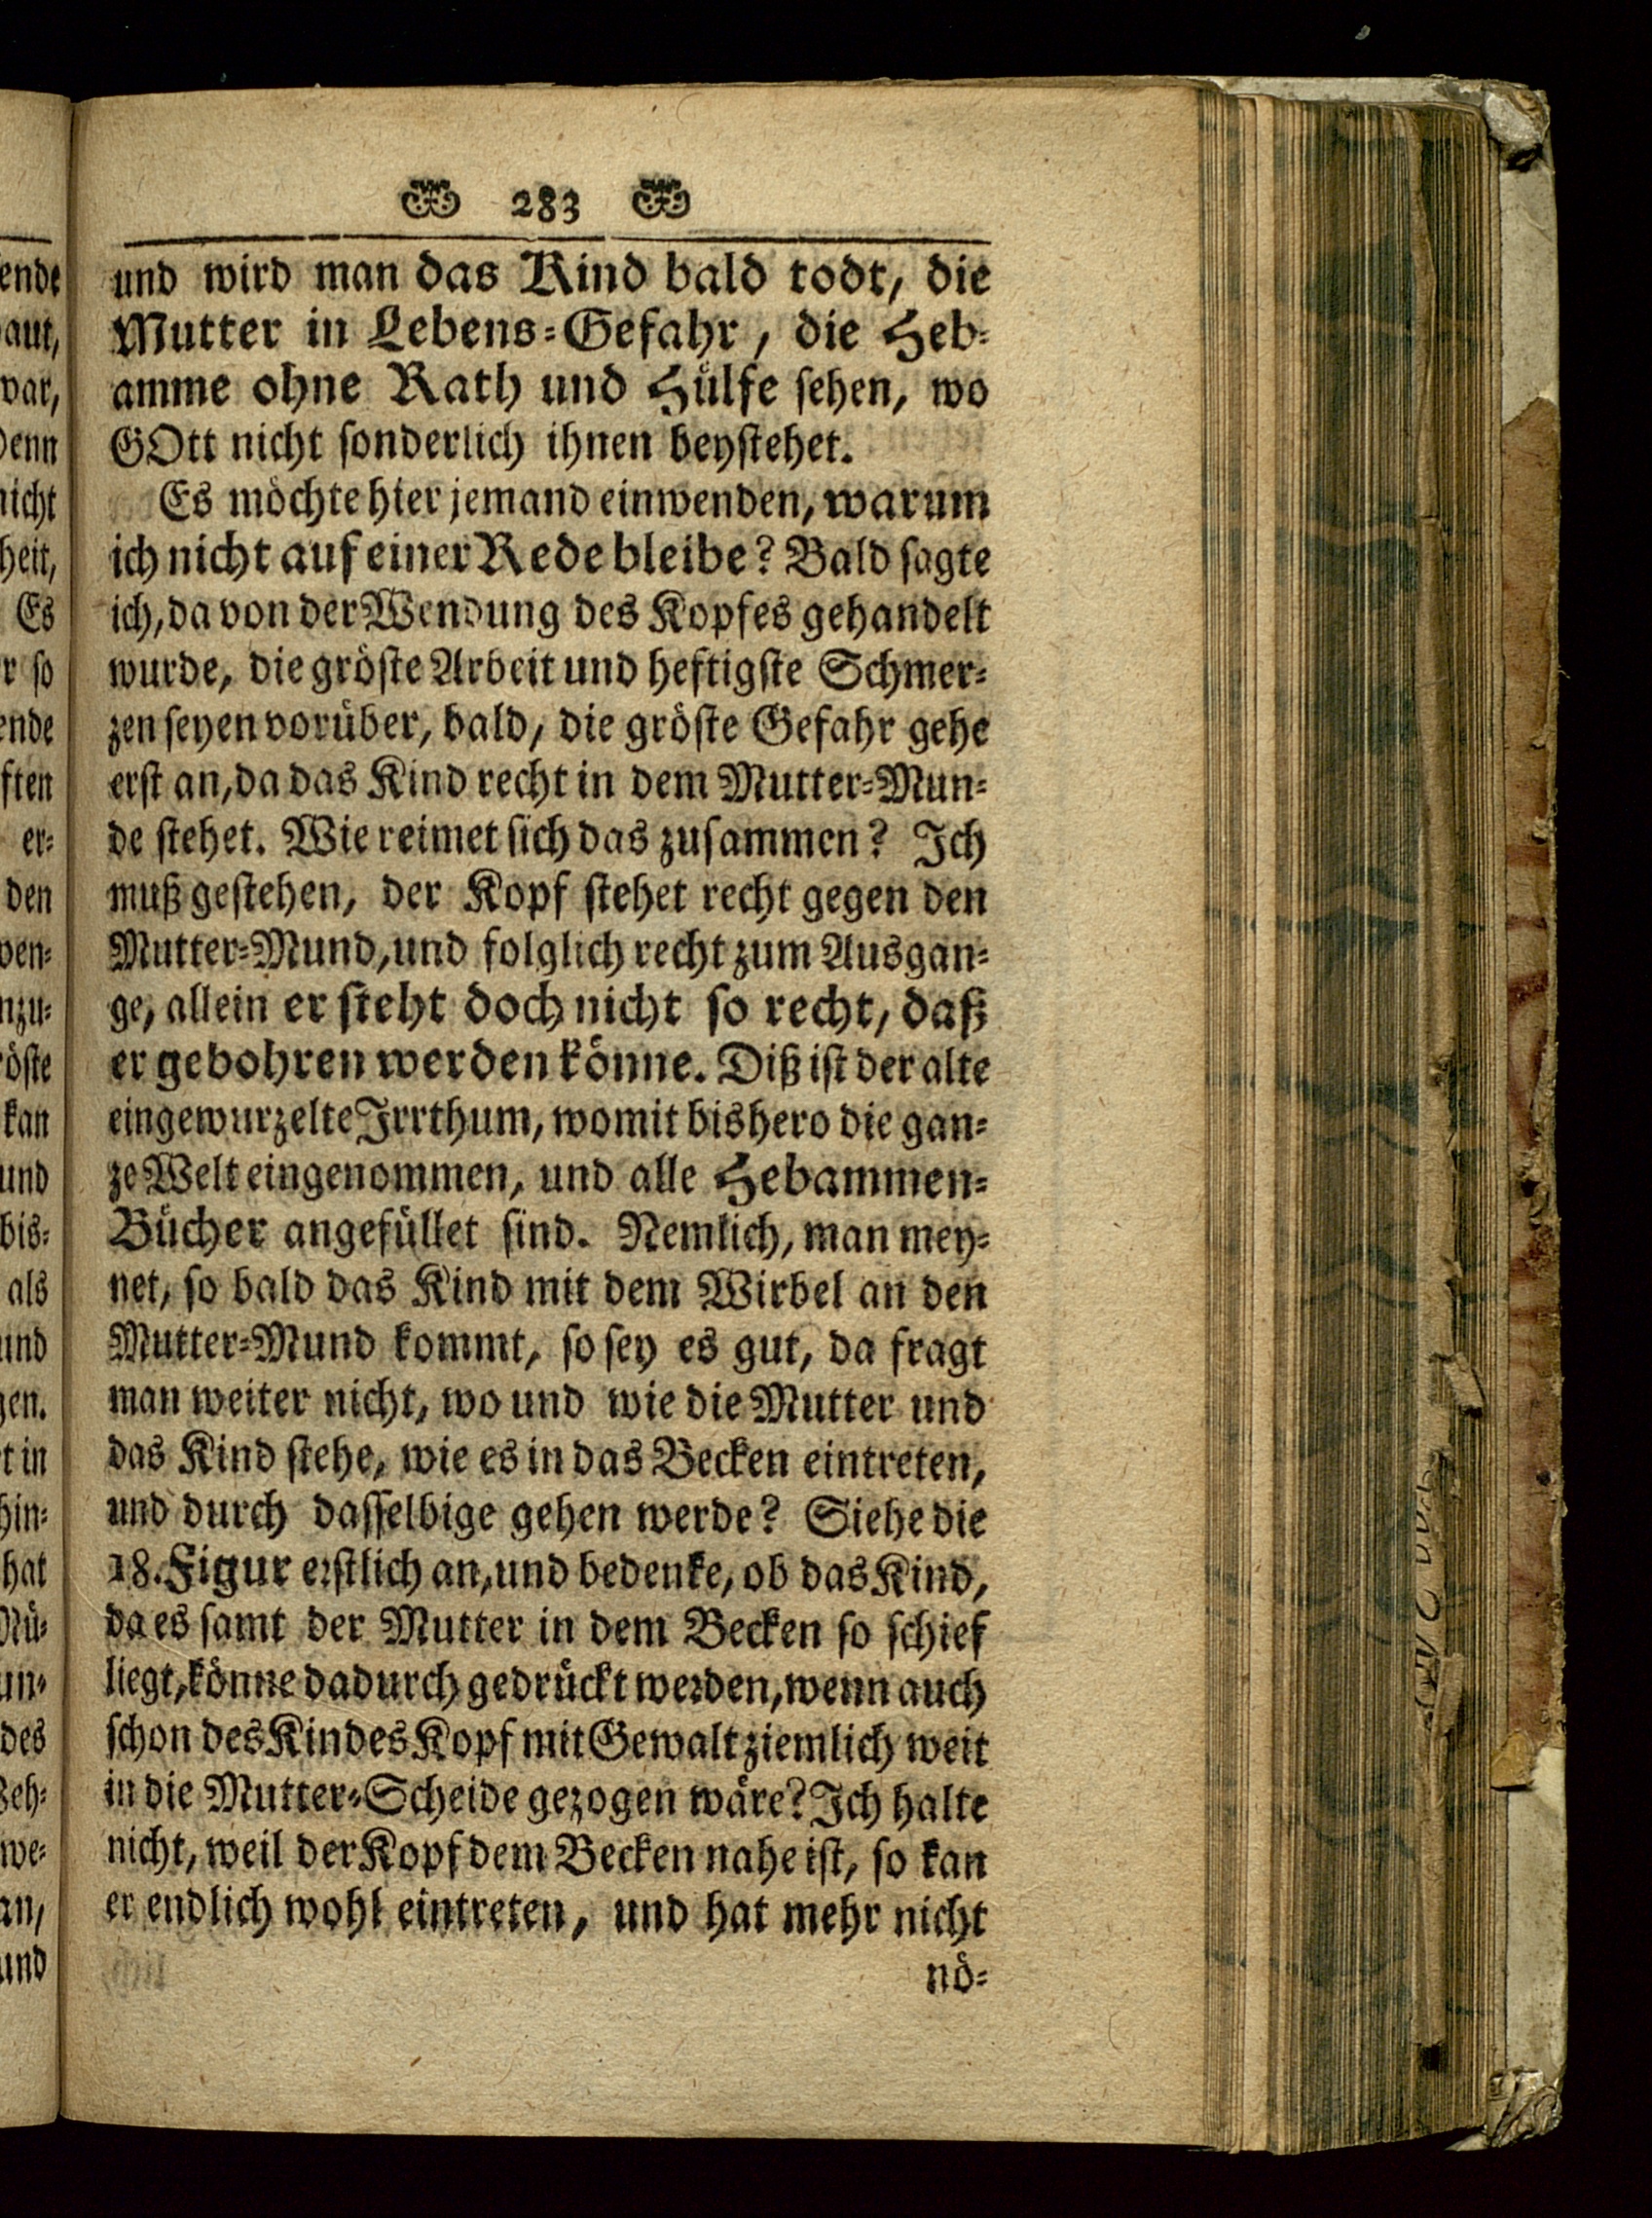 283
und wird man das Kind bald todt, die
Mutter in Lebens-Gefahr, die Heb-
amme ohne Rath und Hülfe sehen, wo
GOtt nicht sonderlich ihnen beystehet.
Es möchte hier jemand einwenden, warum
ich nicht auf einer Rede bleibe? Bald sagte
ich, da von der Wendung des Kopfes gehandelt
wurde, die gröste Arbeit und heftigste Schmer-
zen seyen vorüber, bald, die gröste Gefahr gehe
erst an, da das Kind recht in dem Mutter-Mun-
de stehet. Wie reimet sich das zusammen? Ich
muß gestehen, der Kopf stehet recht gegen den
Mutter-Mund, und folglich recht zum Ausgan-
ge, allein er steht doch nicht so recht, daß
er gebohren werden könne. Diß ist der alte
eingewurzelte Irrthum, womit bishero die gan-
ze Welt eingenommen, und alle Hebammen-
Bücher angefüllet sind. Nemlich, man mey-
net, so bald das Kind mit dem Wirbel an den
Mutter-Mund kommt, so sey es gut, da fragt
man weiter nicht, wo und wie die Mutter und
das Kind stehe, wie es in das Becken eintreten,
und durch dasselbige gehen werde? Siehe die
18. Figur erstlich an, und bedenke, ob das Kind,
da es samt der Mutter in dem Becken so schief
liegt, könne dadurch gedrückt werden, wenn auch
schon des Kindes Kopf mit Gewalt ziemlich weit
in die Mutter-Scheide gezogen wäre? Ich halte
nicht, weil der Kopf dem Becken nahe ist, so kan
er endlich wohl eintreten, und hat mehr nicht
nö-